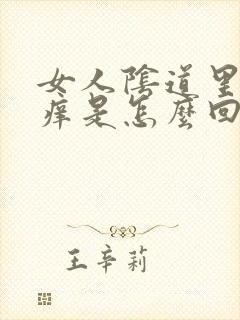 女人陰道里
痒是怎麼回
王辛莉